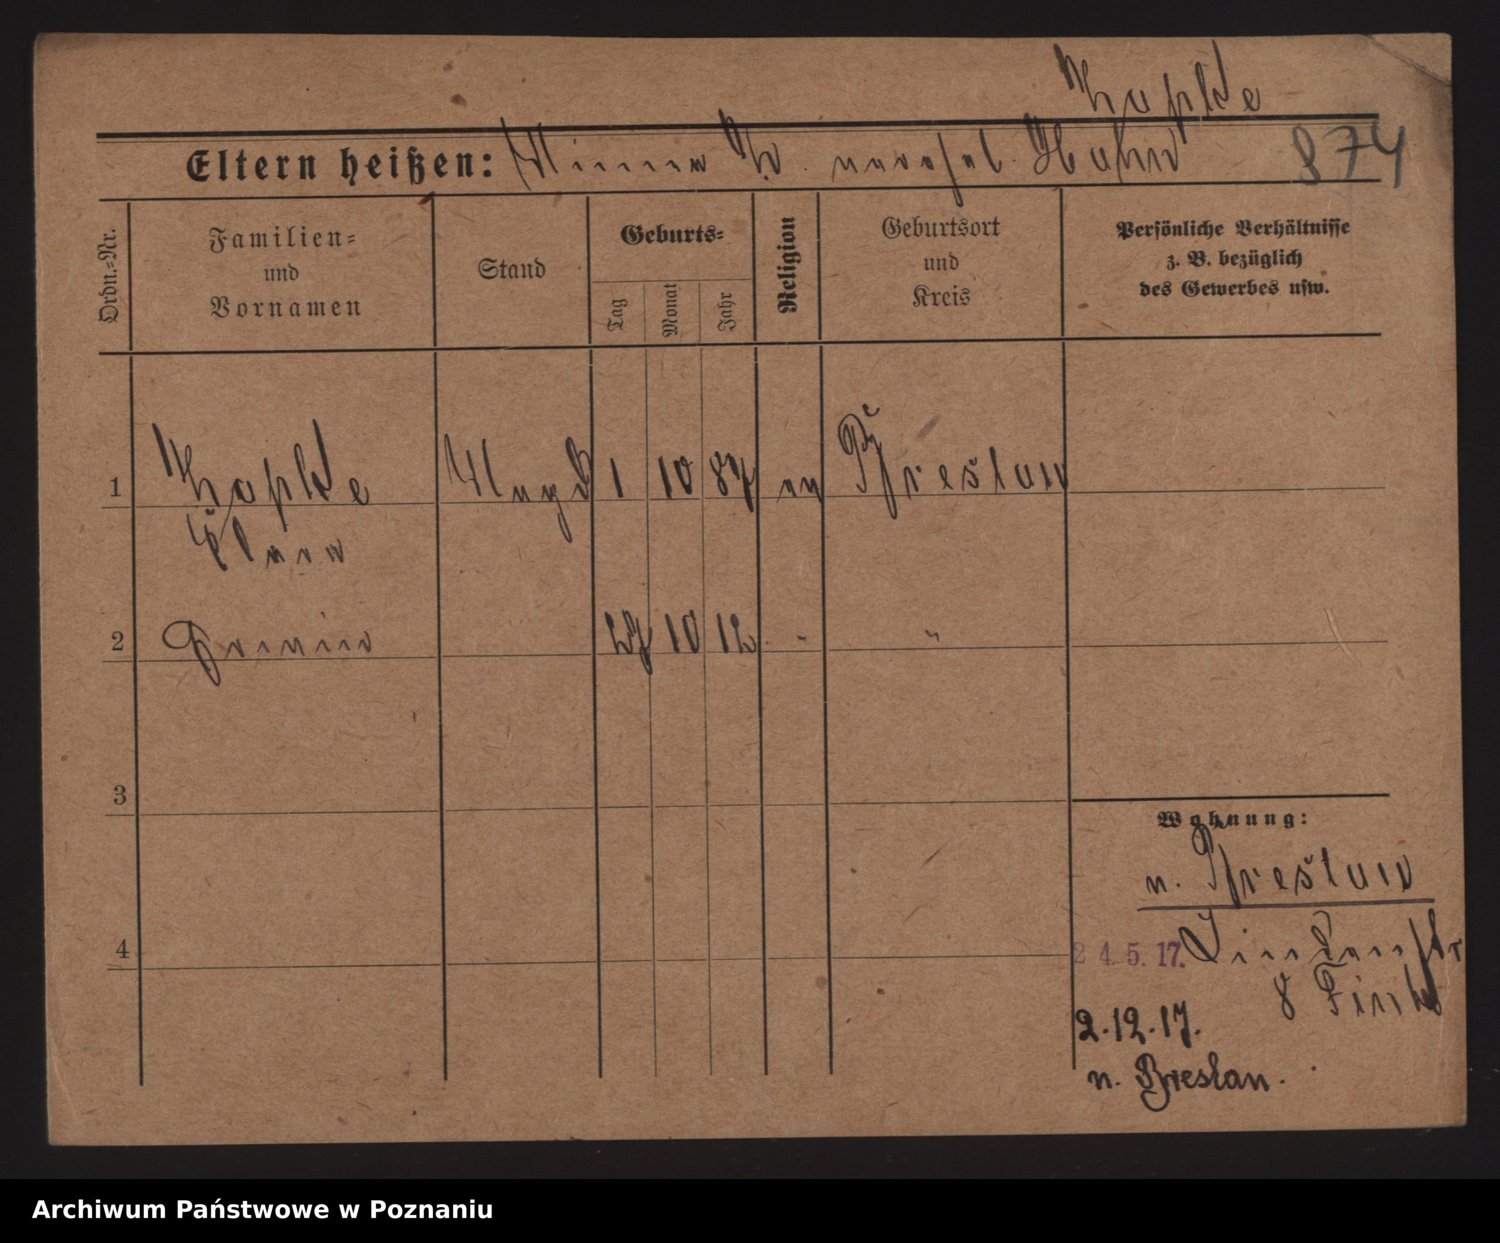 Kopkde
Eltern heißen: Minna K. verehel. Hahn 874
Ordn.=Nr.
Familien=
und
Vornamen
Stand
Geburts=
Tag
Monat
Jahr
Religion
Geburtsort
und
Kreis
Persönliche Verhältnisse
z. B. bezüglich
des Gewerbes usw.
1 Magd 1 10 87 ev Breslau
Clara
2 27 10 12 " "
3
4
Wohnung:
n. Breslau
24.5.17. Lindenstr
8
2.12.17.
n. Breslau.
Archiwum Państwowe w Poznaniu